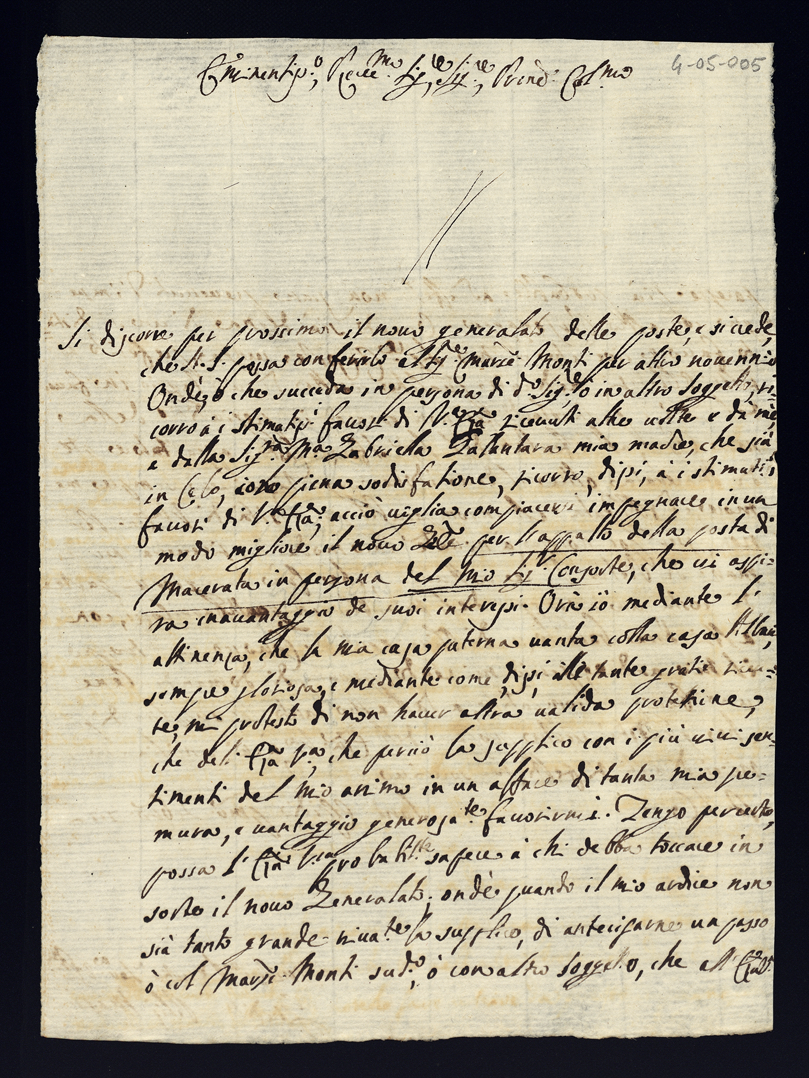 4-05-005
Eminentis.o, Rev.mo Sig.re, Sig.re, Prind: Col.mo
Si discorre per prossimo il novo generalato delle poste, e si crede,
che N. S. possa conferirlo al Sig.re Marse Monti per altro novennio
Ond'è, ò che succeda in persona di d.o Sig.re ò in altro soggetto, ri=
corro à i stimatis.i favori di V.ra riceuti altre volte e da me,
e dalla Sig.ra M.a Gabriella mia madre, che già
in Celo, con piena sodisfatione, ricorro, dissi, à i stimatis.i
favori di V. acciò voglia compiacersi impegnare in un
modo migliore il novo Gele per l'appalto della posta di
Macerata in persona del mio Sig.r Consorte, che vi aspi=
ra in avantaggio de suoi interessi. Orà iò mediante l'
attinenza, che la mia casa paterna vanta colla casa Albani,
sempre gloriosa, e mediante come, dissi, alle tante gratie riceu=
te, mi protesto di non haver altra valida protettine,
che dell' V.ra, che perciò la supplico con i più vivi sen=
timenti del mio animo in un affare di tanta mia pre=
mura, e vantaggio generosa.te favorirmi. Tengo per certo,
possa l' V.ra probabil.te sapere à chi debba toccare in
sorte il novo Generalato; ond'è quando il mio ardire non
sià tanto grande riva.te la supplico, di antecigarne un passo
ò col Marse Monti sud.o, ò con altro soggetto, che all'